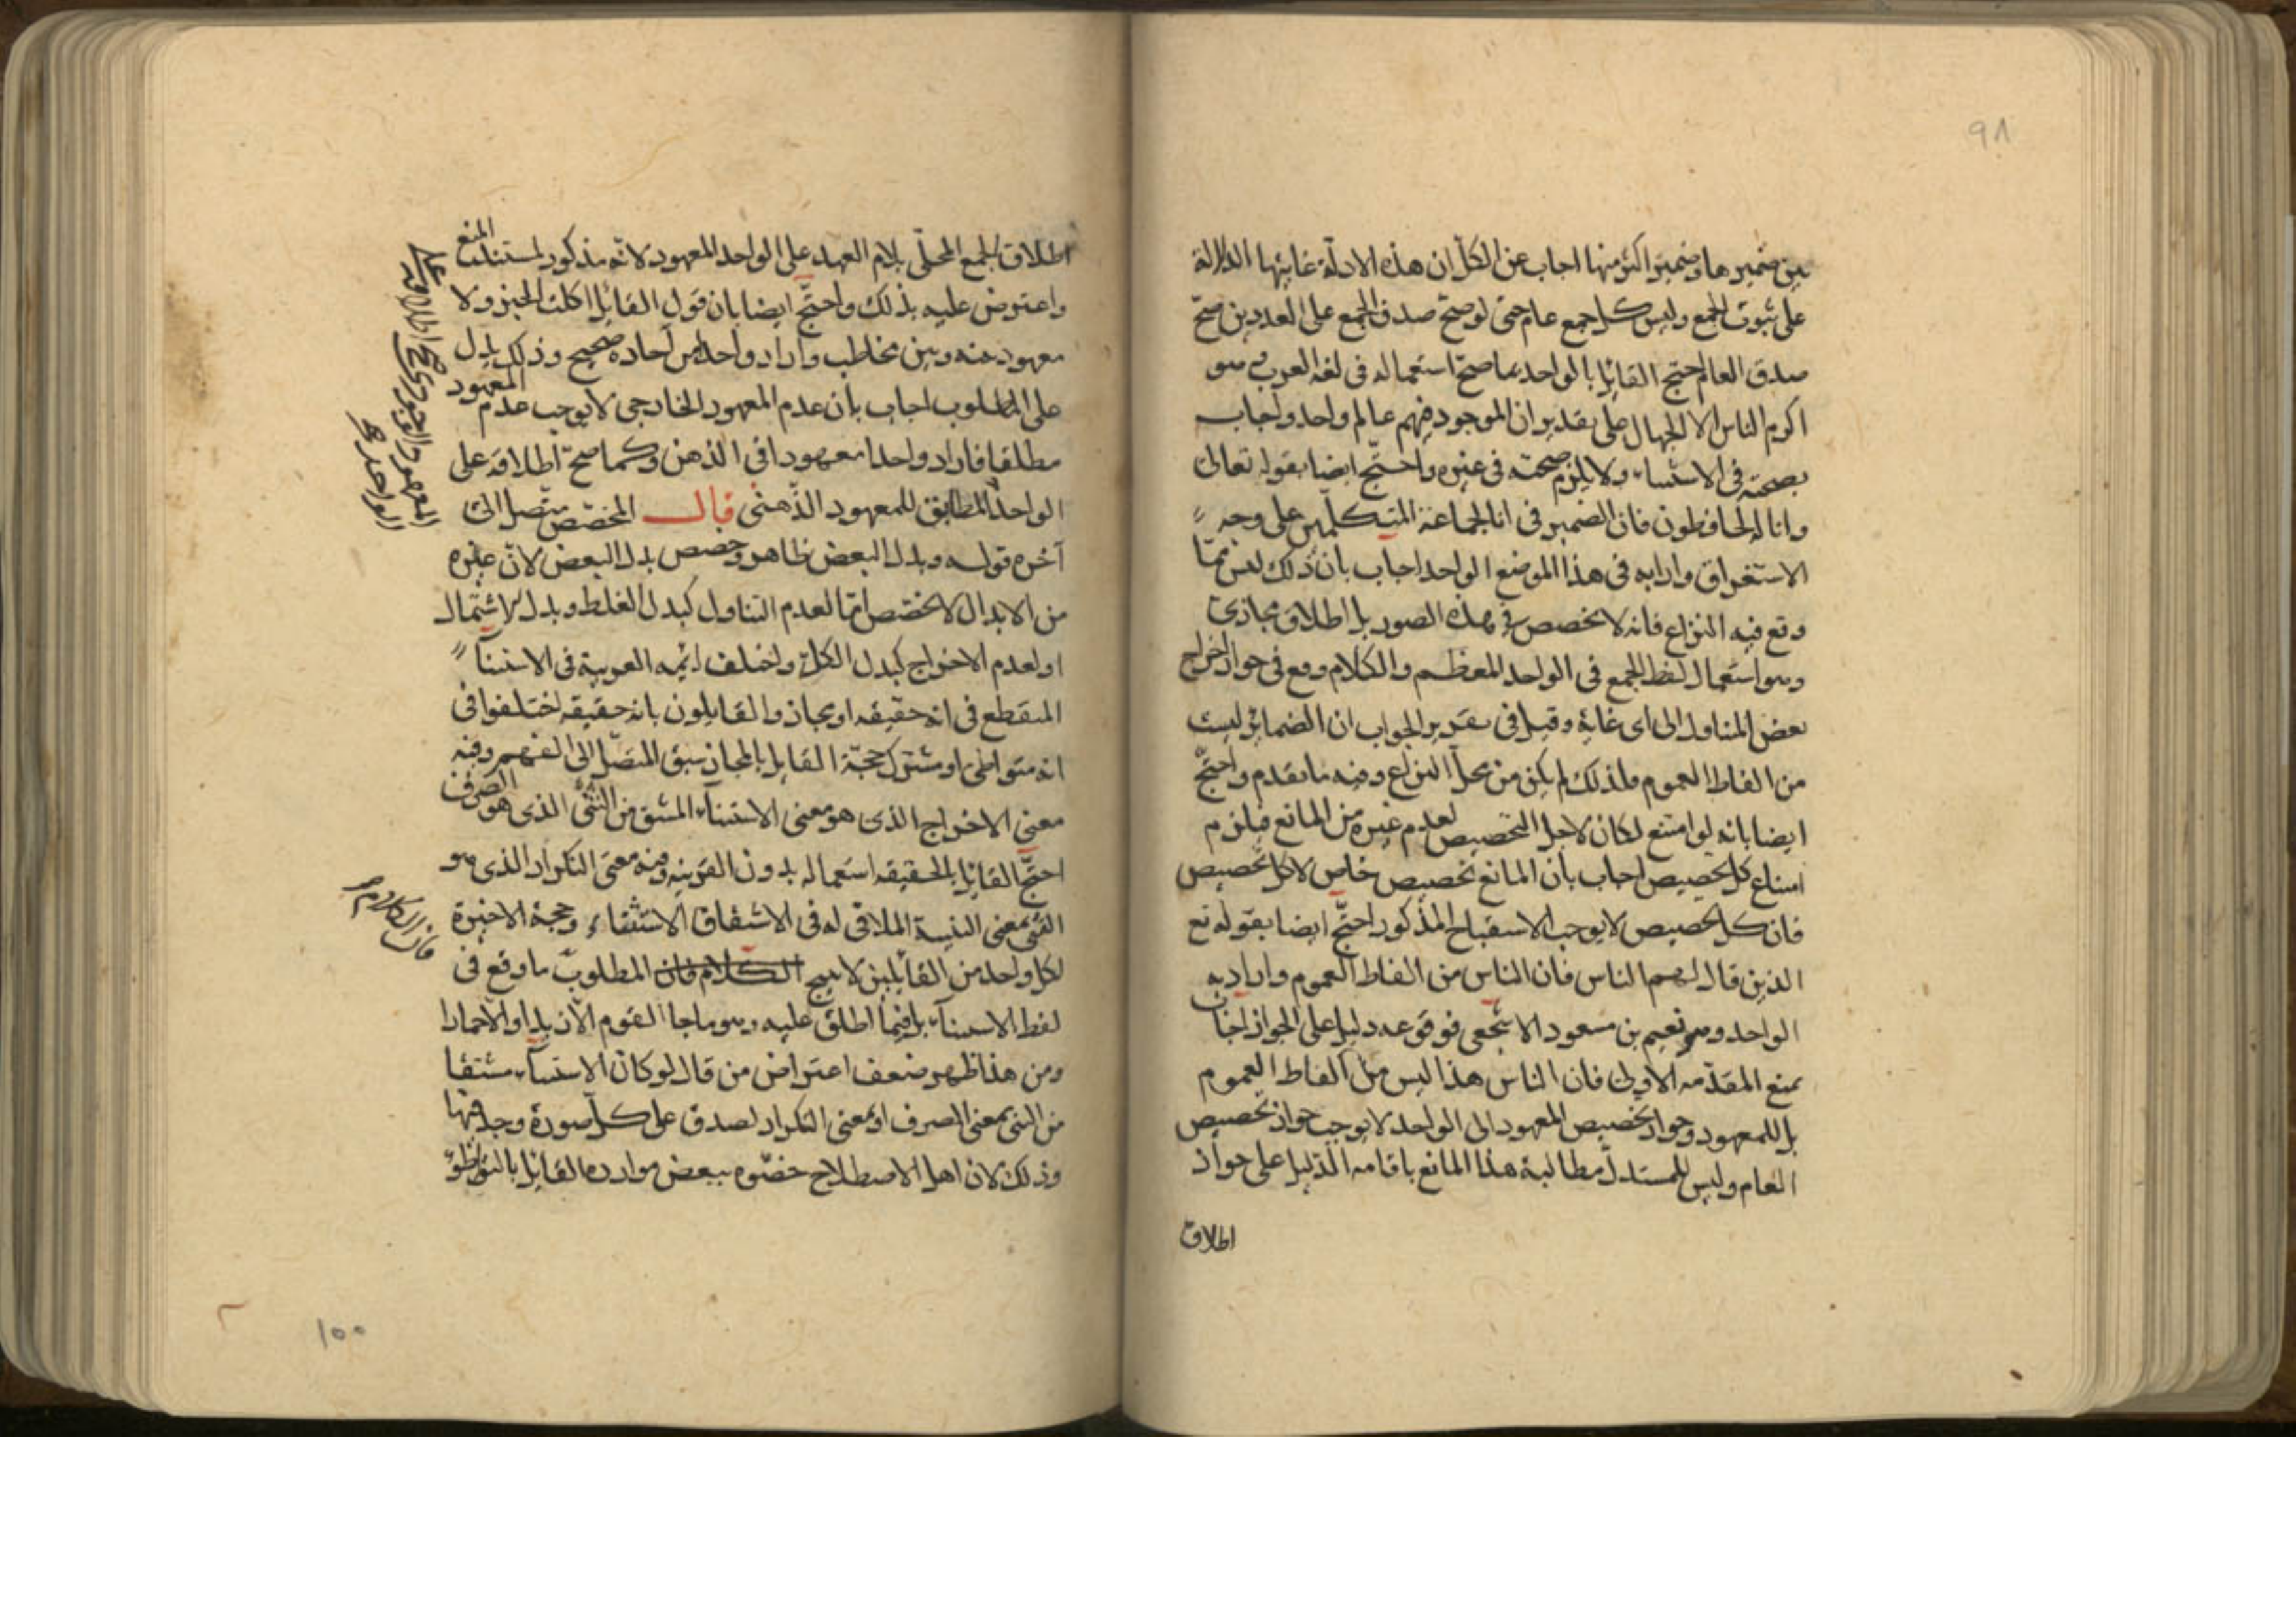 ٩٨
بين ضميرها وضمير اكثر منها اجاب عن الكل ان هذه الادلة غايتها الدلالة
على ثبوت الجمع وليس كل جمع عام حتى لو صح صدق الجمع على العددين صح
صدق العام احتج القائل بالواحد بما صح استعماله فى لغة العرب وهو
اكرم الناس الا الجهال على تقدير ان الموجود فيهم عالم واحد واجاب
بصحته فى الاستثناء ولا يلزم صحته فى غيره واحتج ايضا بقوله تعالى
وانا له لحافظون فان الضمير فى انا لجماعة المتكلمين على وجه
الاستغراق واراد به فى هذا الموضع الواحد اجاب بان ذلك ليس مما
وقع فيه النزاع فانه لا تخصص فى هذه الصور بل اطلاق مجازى
وهو استعمال لفظ الجمع فى الواحد المعظم والكلام وقع فى جواز اخراج
بعض المتناول الى اى غاية وقيل فى تقرير الجواب ان الضمائر ليست
من الفاظ العموم ولذلك لم يكن من محل النزاع وفيه ما تقدم واحتج
ايضا بانه لو امتنع لكان لاجل التخصيص لعدم غيره من المانع فيلزم
امتناع كل تخصيص اجاب بان المانع تخصيص خاص لا كل تخصيص
فان كل تخصيص لا يوجب الاستقباح المذكور احتج ايضا بقوله تع
الذين قال لهم الناس فان الناس من الفاظ العموم واراد به
الواحد وهو نعيم بن مسعود الاشجعى فوقوعه دليل على الجواز اجاب
بمنع المقدمه الاولى فان الناس هذا ليس من الفاظ العموم
بل للمعهود وجواز تخصيص المعهود الى الواحد لا يوجب جواز تخصيص
العام وليس للمستدل مطالبة هذا المانع باقامه الدليل على جواز
اطلاق
اطلاق الجمع المحلى بلام العهد على الواحد المعهود لانه مذكور لمستند المنع
واعترض عليه بذلك واحتج ايضا بان قول القائل اكلت الخبز ولا
معهود بينه وبين مخاطب واراد واحدا من آحاده صحيح وذلك يدل
على المطلوب اجاب بان عدم المعهود الخارجى لا يوجب عدم المعهود
مطلقا فاراد واحدا معهودا فى الذهن وكما صح اطلاقه على
الواحد المطابق للمعهود الذهنى قال المخصص متصل الى
آخره قوله وبدل البعض ظاهر وخصص بدل البعض لان غيره
من الابدال لا تخصص اما لعدم التناول كبدل الغلط وبدل الاشتمال
او لعدم الاخراج كبدل الكل واختلف ائمه العربية فى الاستثناء
المنقطع فى انه حقيقه او مجاز والقايلون بانه حقيقه اختلفوا فى
انه متواطى او مشترك حجة القايل بالمجاز سبق المتصل الى الفهم وفيه
معنى الاخراج الذى هو معنى الاستثناء المشتق من الثنى الذى هو الصرف
احتج القائل بالحقيقه استعماله بدون القرينه وفيه معنى التكرار الذى هو
الثنى بمعنى التثنية الملاقى له فى الاشتقاق الاستثناء وحجة الاخيرة
لكل واحد من القائلين لا ينتج الكلام فان المطلوب ما وقع فى
لفظ الاستثناء بل فيما اطلق عليه وهو ما جاء القوم الا زيدا والا حمارا
ومن هذا ظهر ضعف اعتراض من قال لو كان الاستثناء مشتقا
من الثنى بمعنى الصرف او بمعنى التكرار لصدق على كل صورة وجد فيها
وذلك لان اهل الاصطلاح خصوه ببعض موارده القائل بالتواطؤ
المعهود الوجودى صح اطلاقه على
الواحد صح
فان الكلام صح
١٠٠